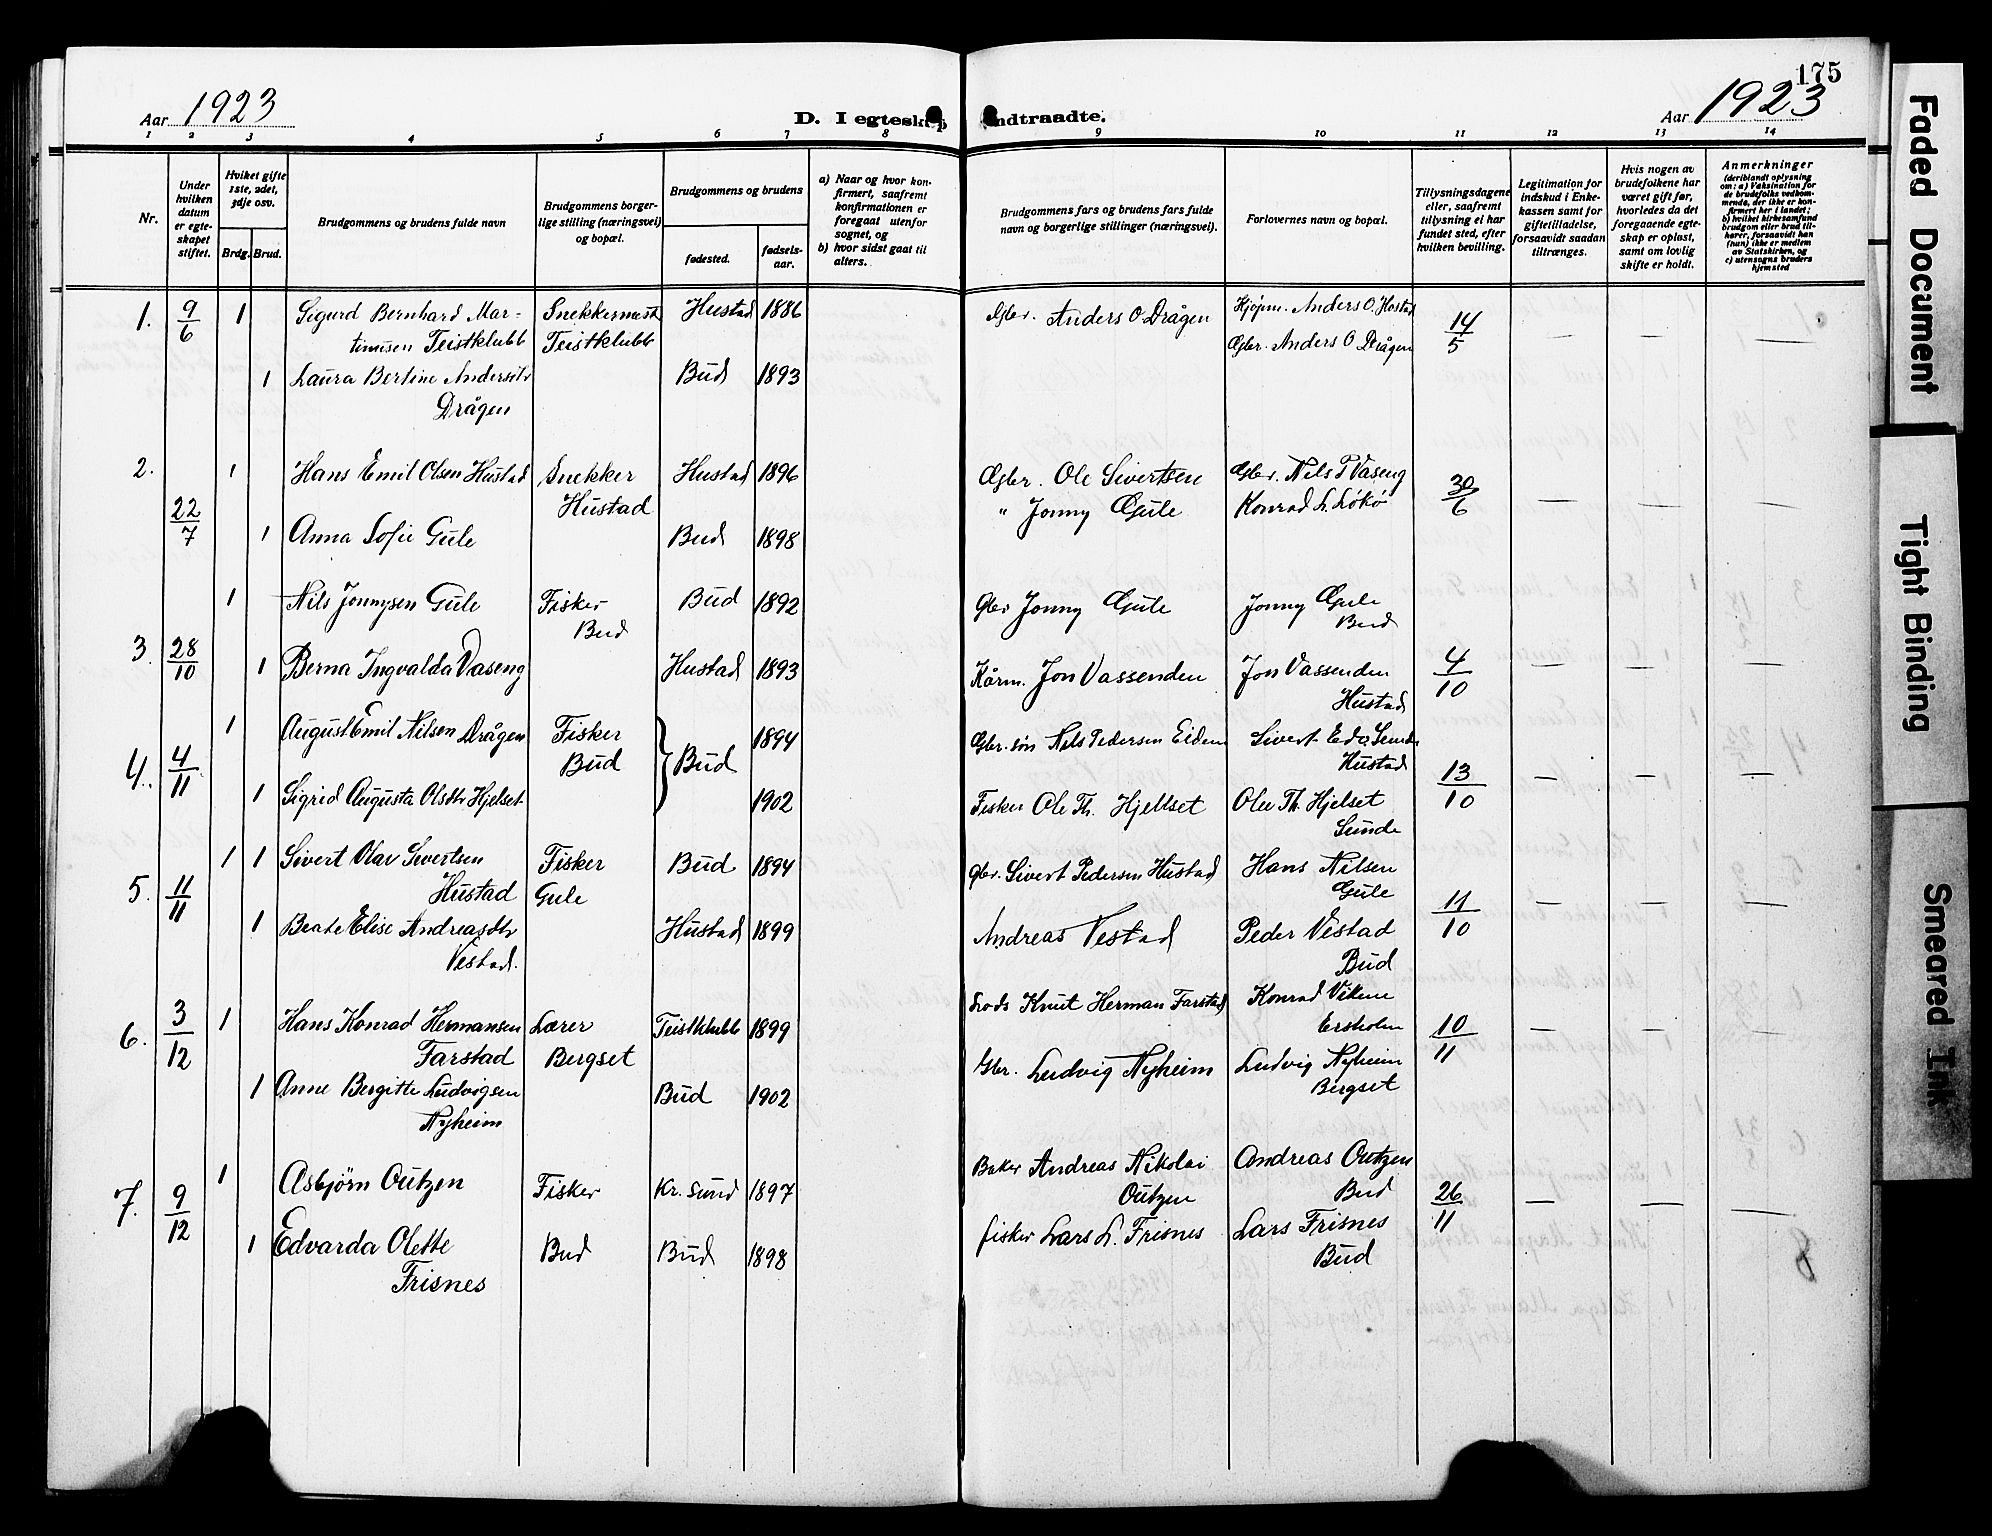 175
Aar 1923
D. I egteskap indtraadte.
Aar 1923
1 2 3 4 5 6 7 8 9 10 11 12 13 14
Nr.
Under hvilken datum er egteskapet stiftet.
Hviket gifte 1ste, 2det, 3dje osv.
Brdg. Brud.
Brudgommens og brudens fulde navn
Brudgommens borgerlige stilling (næringsvei) og bopæl.
Brudgommens og brudens
fødested.
fødselsaar.
a) Naar og hvor konfirmert, saafremt konfirmationen er foregaat utenfor sognet, og
b) hvor sidst gaat til alters.
Brudgommens fars og brudens fars fulde navn og borgerlige stillinger (næringsvei).
Forlovernes navn og bopæl.
Tillysningsdagene eller, saafremt tillysning ei har fundet sted, efter hvilken bevilling.
Legitimation for indskud i Enkekassen samt for giftetilladelse, forsaavidt saadan tiltrænges.
Hvis nogen av brudefolkene har været gift før, hvorledes da det foregaaende egteskap er opløst, samt om lovlig skifte er holdt.
Anmerkninger (deriblandt oplysning om: a) Vaksination for de brudefolks vedkommende, der ikke er konfirmert her i landet; b) hvilket kirkesamfund brudgom eller brud tilhører, forsaavidt han (hun) ikke er medlem av Statskirken, og c) utensogns bruders hjemsted
1. 9/6 1 Sigurd Bernhard Mar- Snekkermest. Hustad 1886 Gbr. Anders O Drågen Kjøpm. Anders O. Hostad 14/5 — — —
tinusen Teistklubb Teistklubb Gbr. Anders O Drågen
1 Laura Bertine Andersdtr Bud 1893
Drågen
2. 22/7 1 Hans Emil Olsen Hustad Snekker Hustad 1896 Gbr. Ole Sivertsen Gbr. Nils T Vaseng 30/6 — — —
Hustad " Jonny Gule Konrad L. Løkø
1 Anna Sofie Gule Bud 1898
1 Nils Jonnysen Gule Fisker Bud 1892 Gbr Jonny Gule Jonny Gule
Bud Bud
3. 28/10 1 Berna Ingvalda Vaseng Hustad 1893 Kårm. Jon Vassenden Jon Vassenden 4/10 — — —
Hustad
1 August Emil Nilsen Drågen Fisker 1894 Gbr. søn Nils Pedersen Eidem Sivert Edv. Sunde
4. 4/11 Bud Bud Hustad 13/10 — — —
1 Sigrid Augusta Olsdtr Hjelset 1902 Fisker Ole Th. Hjellset Ole Th. Hjelset
Sunde
1 1 Sivert Olav Sivertsen Fisker Bud 1894 Gbr. Sivert Pedersen Hustad Hans Nilsen
5. 11/11 Hustad Gule Gule 11/10 — — —
1 Beate Elise Andreasdtr Hustad 1899 Andreas Vestad Peder Vestad
Vestad. Bud
6. 3/12 1 Hans Konrad Hermansen Lærer Teistklubb 1899 Lods Knut Herman Farstad Konrad Viken
Farstad Bergset Ersholm 10/11 — — —
1 Anne Bergitte Ludvigsen Bud 1902 Gbr. Ludvig Nyheim Ludvig Nyheim
Nyheim Bergset
7. 9/12 1 Asbjörn Outzen Fisker Kr. sund 1897 Baker Andreas Nikolai Andreas Outzen
Outzen Bud 26/11 — — —
1 Edvarda Olette Bud Bud 1898 fisker Lars L. Frisnes Lars Frisnes
Frisnes Bud
Faded Document
Tight Binding
Smeared Ink